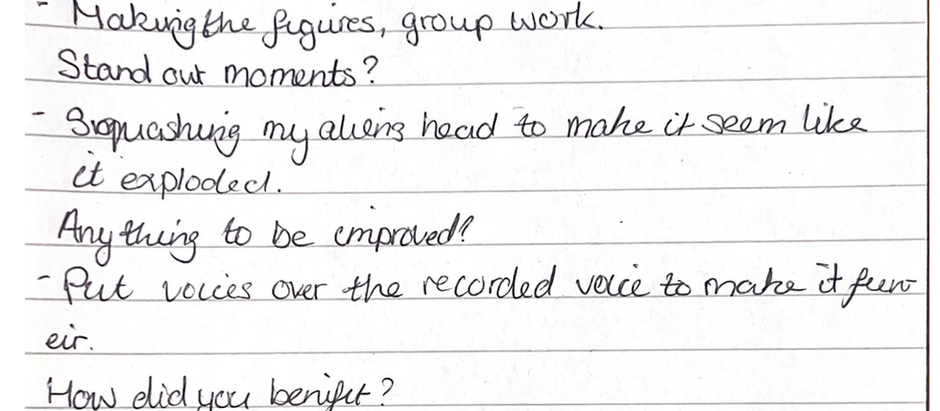 - Making the figures, group work.
Stand out moments?
- Squashing my aliens head to make it seem like
it exploded.
Any thing to be improved?
- Put voices over the recorded voice to make it funn
eir.
How did you benifit?